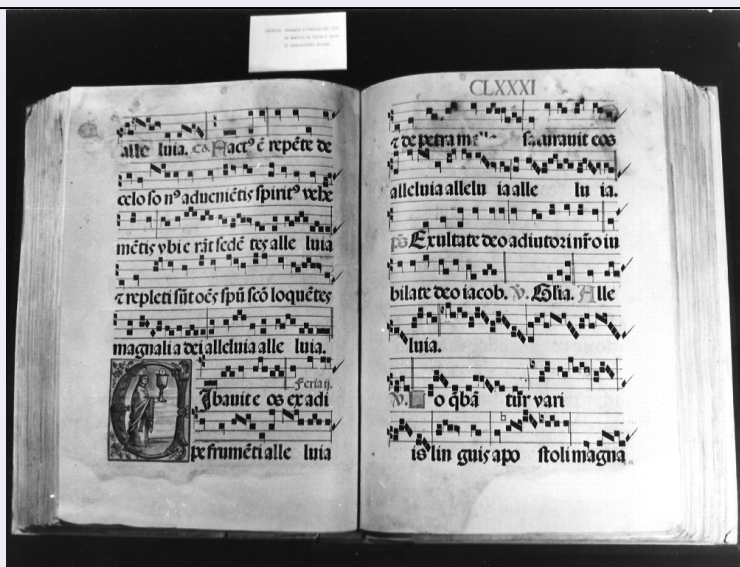 alle luia. Co. Fact9 ē repēte de
celo so n9 adueniētis spirit9 vehe
mētis vbi e rāt sedē tes alle luia
⁊ repleti sūt oēs spū scō loquētes
magnalia dei alleluia alle luia.
Feria ij.
Cibauit e os ex adi
pe frumēti alle luia
CLXXXI
⁊ de petra saturauit eos
alleluia allelu ia alle lu ia.
ps Exultate deo adiutori nr̄o iu
bilate deo iacob. V. Glia. Alle
luia.
V. Lo q̄bā tur vari
is lin guis apo stoli magna